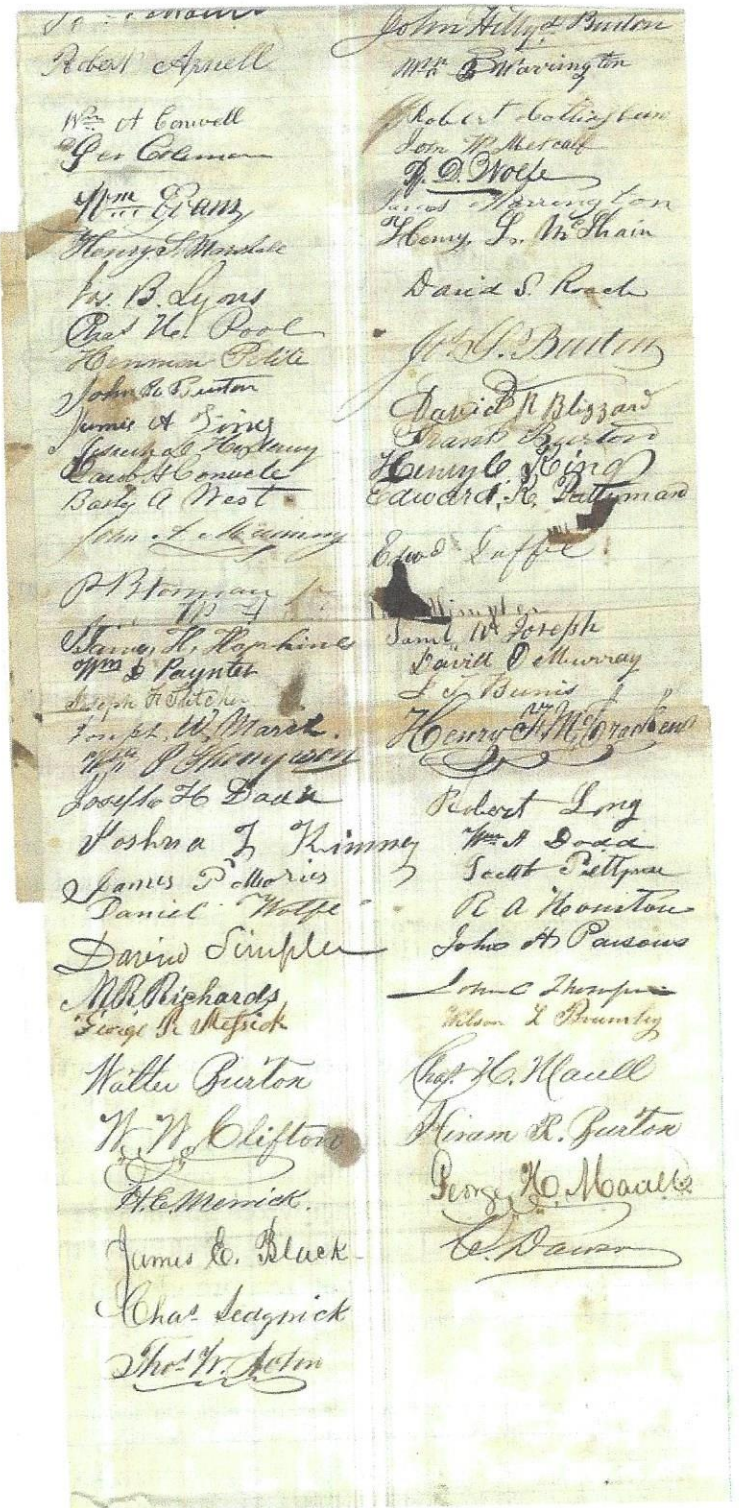 Robert Arnell
Wm A Conwell
Geo Coleman
Wm Evans
Henry S. Marshall
Jas. B. Lyons
Chas H. Pool
Henman Petite
John R Burton
James A Lin
Jacob A Conwele
Baily A West
John A
P B Norman
James H. Hopkins
Wm D Paynter
Joseph H Fletcher
Joseph W. Marsh.
Wm P Thompson
Joseph H Dodd
Joshua J Kimmey
James P Morris
Daniel Wolfe
David Simpler
M R Richards
George R Messick
Walter Burton
W. W. Clifton
H. C. Merrick.
James E. Black
Chas Sedgwick
Thos W. John
John Hillyd Burton
Wm B Warrington
Robert Cottingham
John W Metcalf
R. D. Wolfe
James Warrington
Henry L. McShain
David S. Roach
G. Burton
David R Blizzard
Frank Burton
Henry C King
Edward R. Pettyman
Edwd
Saml W Joseph
David O Murray
J T Bunis
Henry F. McCracken
Robert Long
Wm A Dodd
Scott Pettyman
R A Houston
John H Parsons
John C Thompson
Wilson L Brumley
Chas. H. Maull
Hiram R. Burton
George H. Maull
C. Dawson